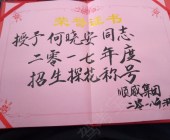 荣誉证书
授予何晓安同志
二零一七年度
招生探花称号
顺威集团